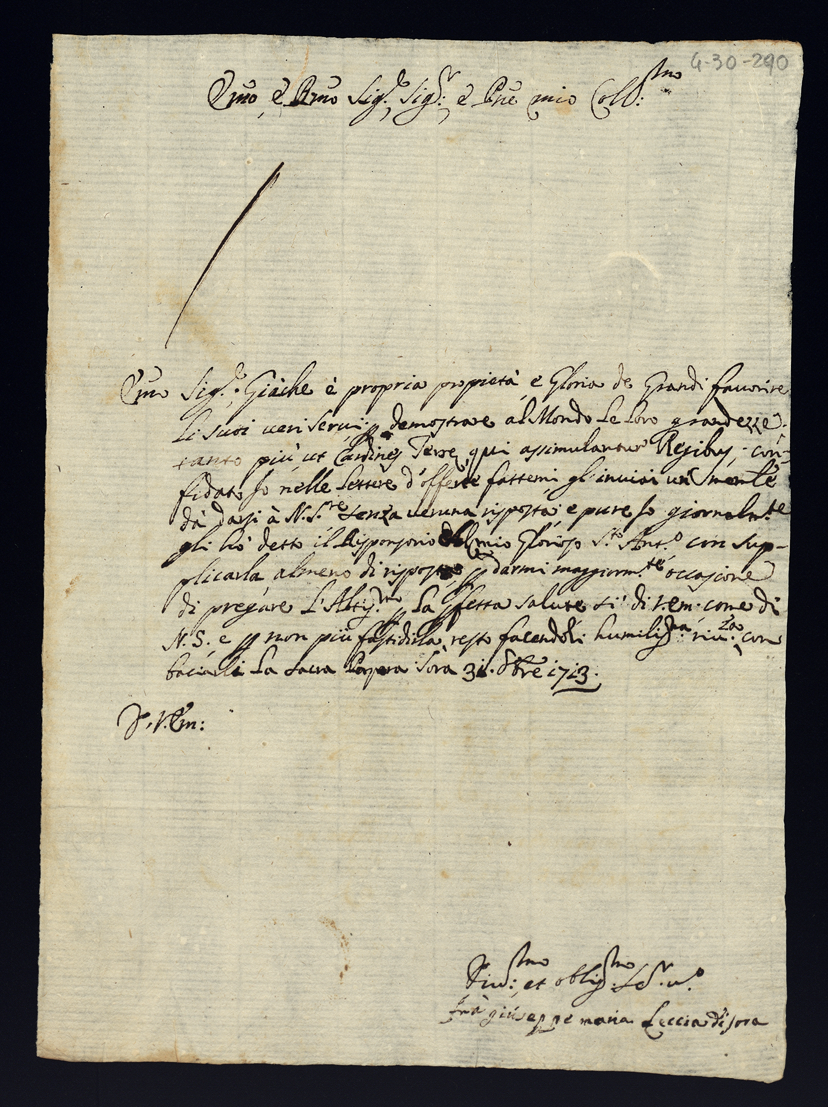 G-30-290
Emo, e Rmo Sig.e Sig.r e Pne mio Coll:mo
Emo Sig.e Giache è propria propietà e Gloria de Grandi favorire
li suoi veri servi p demostrare al Mondo le loro grandezze.
tanto più ut Cardines Terre, qui assimulantur Regibus, con-
fidato Io nelle lettere d'offerte fattemi gl'inviai un
dà darsi à N.S.re senza veruna risposta e pure Io giornalm.te
gli hò detto il Risponsorio del mio Glorioso S.to Ant.o con sup-
plicarla almeno di risposta p darmi maggiorm.te occasione
di pregare L'Altis.mo p La pfetta salute sì di V.Em: come di
N.S. e p non più fastidirla, resto facendoli humilis.ma riv.za con
baciarli La Sacra Porpora Sora 31. Xbre 1713.
D. V. Em:
Div:mo et oblig:mo Se.r v.o
Frà giuseppe maria Leccia di sora